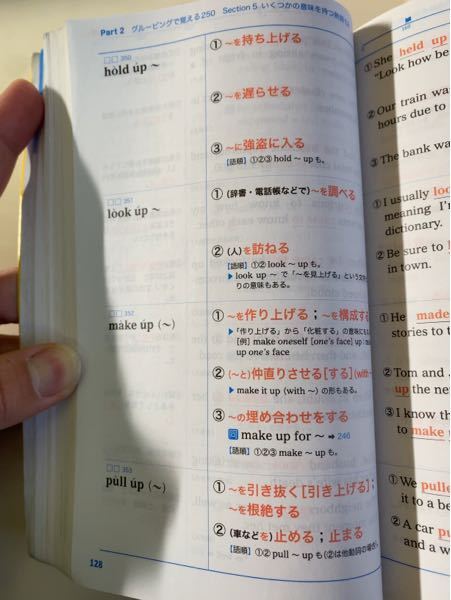 Part 2 グルーピングで覚える250 Section 5 いくつかの意味を持つ熟語
□□ 350
hòld úp ～
① ～を持ち上げる
② ～を遅らせる
③ ～に強盗に入る
【語順】①②③ hold ～ up も。
□□ 351
lòok úp ～
① (辞書・電話帳などで)～を調べる
② (人)を訪ねる
【語順】①② look ～ up も。
▶ look up ～ で「～を見上げる」という文字
りの意味もある。
□□ 352
màke úp (～)
① ～を作り上げる；～を構成する
▶「作り上げる」から「化粧する」の意味にも
[例] make oneself [one's face] up / ma
up one's face
② (～と)仲直りさせる[する](with
▶ make it up (with ～) の形もある。
③ ～の埋め合わせをする
同 make up for ～ ⇒ 246
【語順】①②③ make ～ up も。
□□ 353
pùll úp (～)
① ～を引き抜く[引き上げる]；
～を根絶する
② (車などを)止める；止まる
【語順】①② pull ～ up も(②は他動詞の場合)
128
① She held up
"Look how be
② Our train wa
hours due to
③ The bank wa
① I usually loo
meaning I'm
dictionary.
② Be sure to l
in town.
① He made
stories to t
② Tom and
up the ne
③ I know th
to make
① We pulle
it to a be
② A car p
and a w